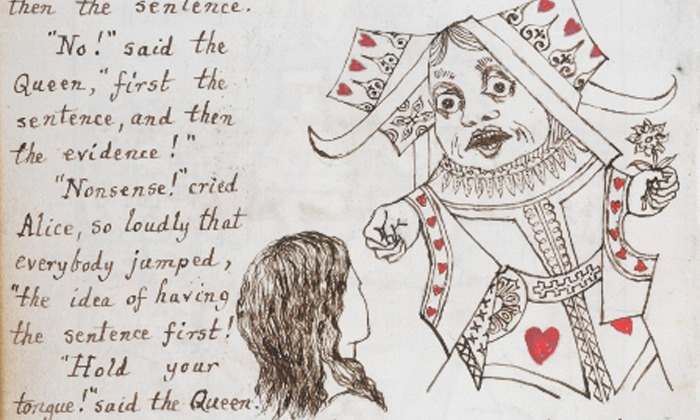 then the sentence.
"No!" said the
Queen, "first the
sentence, and then
the evidence!"
"Nonsense!" cried
Alice, so loudly that
everybody jumped,
"the idea of having
the sentence first!
"Hold your
tongue!" said the Queen.